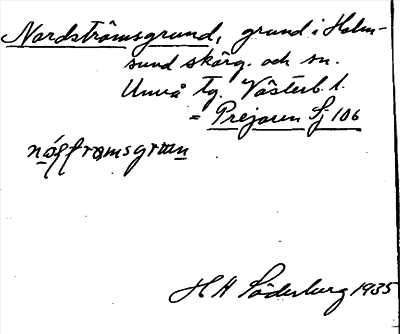 Nordströmsgrund, grund i Holm-
sund skärg. och sn.
Umeå tg. Västerb. l.
= Prejaren Sj 106
H A Söderberg 1935